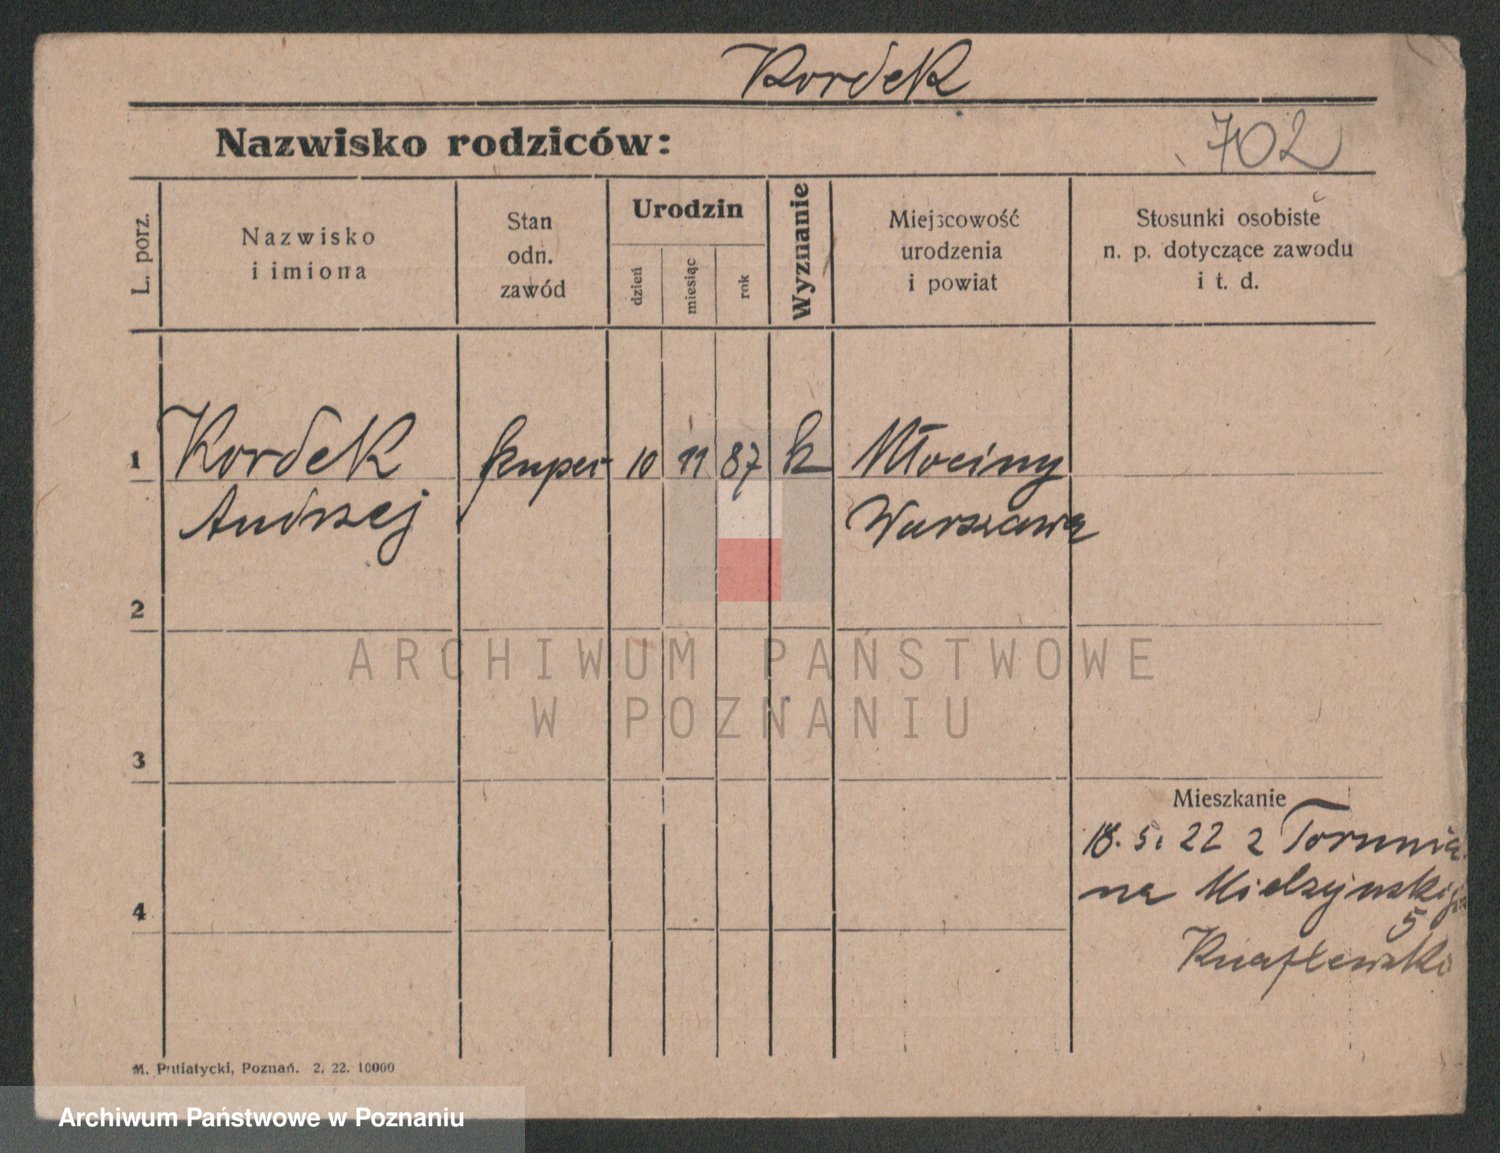 Kordek
Nazwisko rodziców:
702
L. porz.
Nazwisko
i imiona
Stan
odn.
zawód
Urodzin
dzień
miesiąc
rok
Wyznanie
Miejscowość
urodzenia
i powiat
Stosunki osobiste
n. p. dotyczące zawodu
i t. d.
1
Kordek
10
11
87
k
Młociny
Andrzej
Warszawa
2
ARCHIWUM PAŃSTWOWE
W POZNANIU
3
Mieszkanie
18. 5. 22 z Torunia
na
5
4
M. Putiatycki, Poznań. 2. 22. 10000
Archiwum Państwowe w Poznaniu